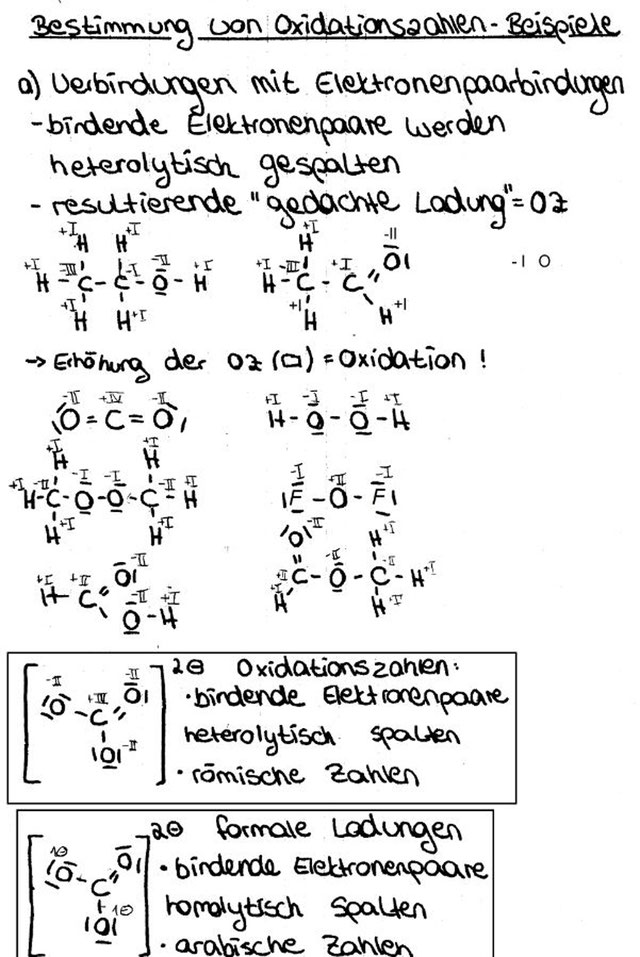 Bestimmung von Oxidationszahlen - Beispiele
a) Verbindungen mit Elektronenpaarbindungen
- bindende Elektronenpaare werden
heterolytisch gespalten
- resultierende "gedachte Ladung" = OZ
+I +I
H H
+I -III -I -II +I
H - C - C - O - H
+I H H +I
+I -II
H O
+I -III +I
H - C - C
+I H H +I
-I 0
→ Erhöhung der OZ (□) = Oxidation !
-II +IV -II
O = C = O
+I -I -I +I
H - O - O - H
+I +I
H H
+I -II -I -I -II +I
H - C - O - O - C - H
H +I H +I
-I +II -I
F - O - F
+I +II O -II
H - C
-II +I
O - H
O -II H +I
+II -II -II
C - O - C - H +I
H H +I
-II -II
2⊖ Oxidationszahlen:
O +IV O
C
O -II
• bindende Elektronenpaare
heterolytisch spalten
• römische Zahlen
2⊖ formale Ladungen
1⊖
O - C O
O 1⊖
• bindende Elektronenpaare
homolytisch spalten
• arabische Zahlen